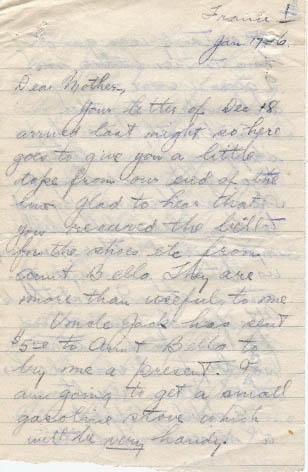 France 1
Jan 19-16.
Dear Mother,
Your letter of Dec 18
arrived last night so here
goes to give you a little
dope from our end of the
line glad to hear that
you received the bill
for the shoes etc from
Aunt Bella They are
more than useful to me
Uncle Jack has sent
$5.00 to Aunt Bella to
buy me a present. I
am going to get a small
gasoline stove which
will be very handy.